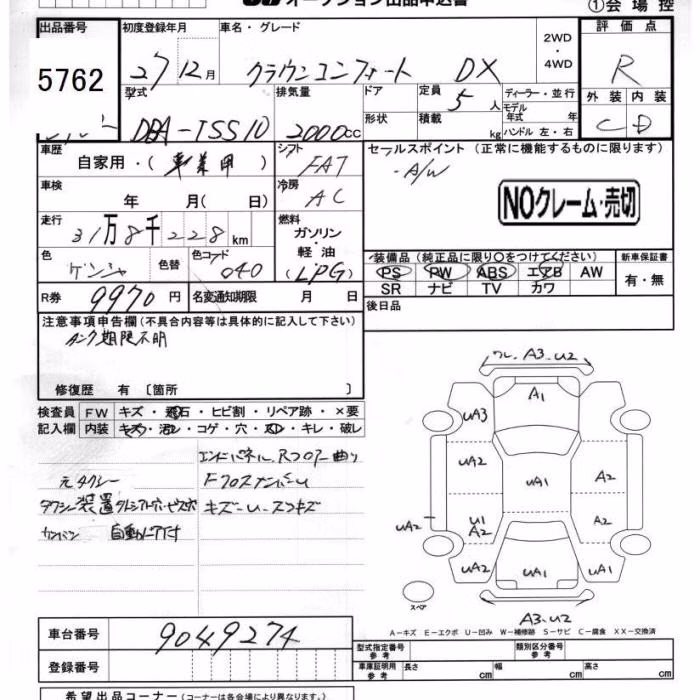 オークション出品申込書
①会場控
出品番号
5762
初度登録年月
27 12月
車名・グレード
クラウンコンフォート DX
2WD
・
4WD
評価点
R
型式
DBA-TSS10
排気量
2000cc
ドア
形状
定員
5人
積載
kg
ディーラー・並行
モデル
年式 年
ハンドル 左・右
外装 内装
C D
車歴
自家用・(事業用)
シフト
FAT
セールスポイント (正常に機能するものに限ります)
・A/W
NOクレーム・売切
車検
年 月( 日)
冷房
AC
走行
31万8千228km
燃料
ガソリン
・
軽油
(LPG)
色
ゲンシャ
色替
色コード
040
装備品(純正品に限り○をつけてください)
PS PW ABS エアB AW
SR ナビ TV カワ
新車保証書
有・無
R券 9970円
名変通知期限 月 日
後日品
注意事項申告欄(不具合内容等は具体的に記入して下さい)
タンク期限不明
修復歴 有 〔箇所 〕
検査員
記入欄
FW キズ・飛石・ヒビ割・リペア跡・×要
内装 キズ・汚レ・コゲ・穴・スレ・キレ・破レ
エンドパネル、Rフロアー曲り
元タクシー
Fクロスメンバーu
タクシー装置
キズ-u-スアキズ
自動ドア付
ワレ、A3、U2
A1
UA3
UA2
UA1
A2
UA2
U1
A2
A2
UA2
UA1
UA1
スペア
A3、U2
A-キズ E-エクボ U-凹み W-補修跡 S-サビ C-腐食 XX-交換済
車台番号
9049274
登録番号
型式指定番号
参考
類別区分番号
参考
車庫証明用
参考
長さ cm
幅 cm
高さ cm
希望出品コーナー(コーナーは各会場により異なります。)